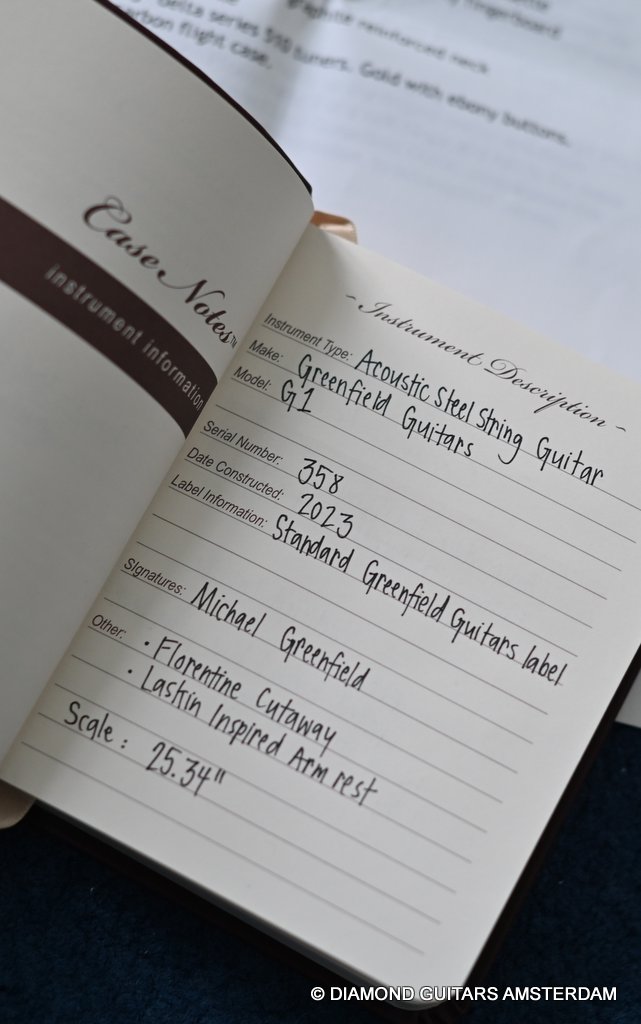 fingerboard
graphite reinforced neck
Delta series 510 tuners. Gold with ebony buttons.
flight case.
Case Notes™
instrument information
~ Instrument Description ~
Instrument Type: Acoustic Steel String Guitar
Make: Greenfield Guitars
Model: G1
Serial Number: 358
Date Constructed: 2023
Label Information: Standard Greenfield Guitars label
Signatures: Michael Greenfield
Other: • Florentine Cutaway
• Laskin Inspired Arm rest
Scale: 25.34"
© DIAMOND GUITARS AMSTERDAM